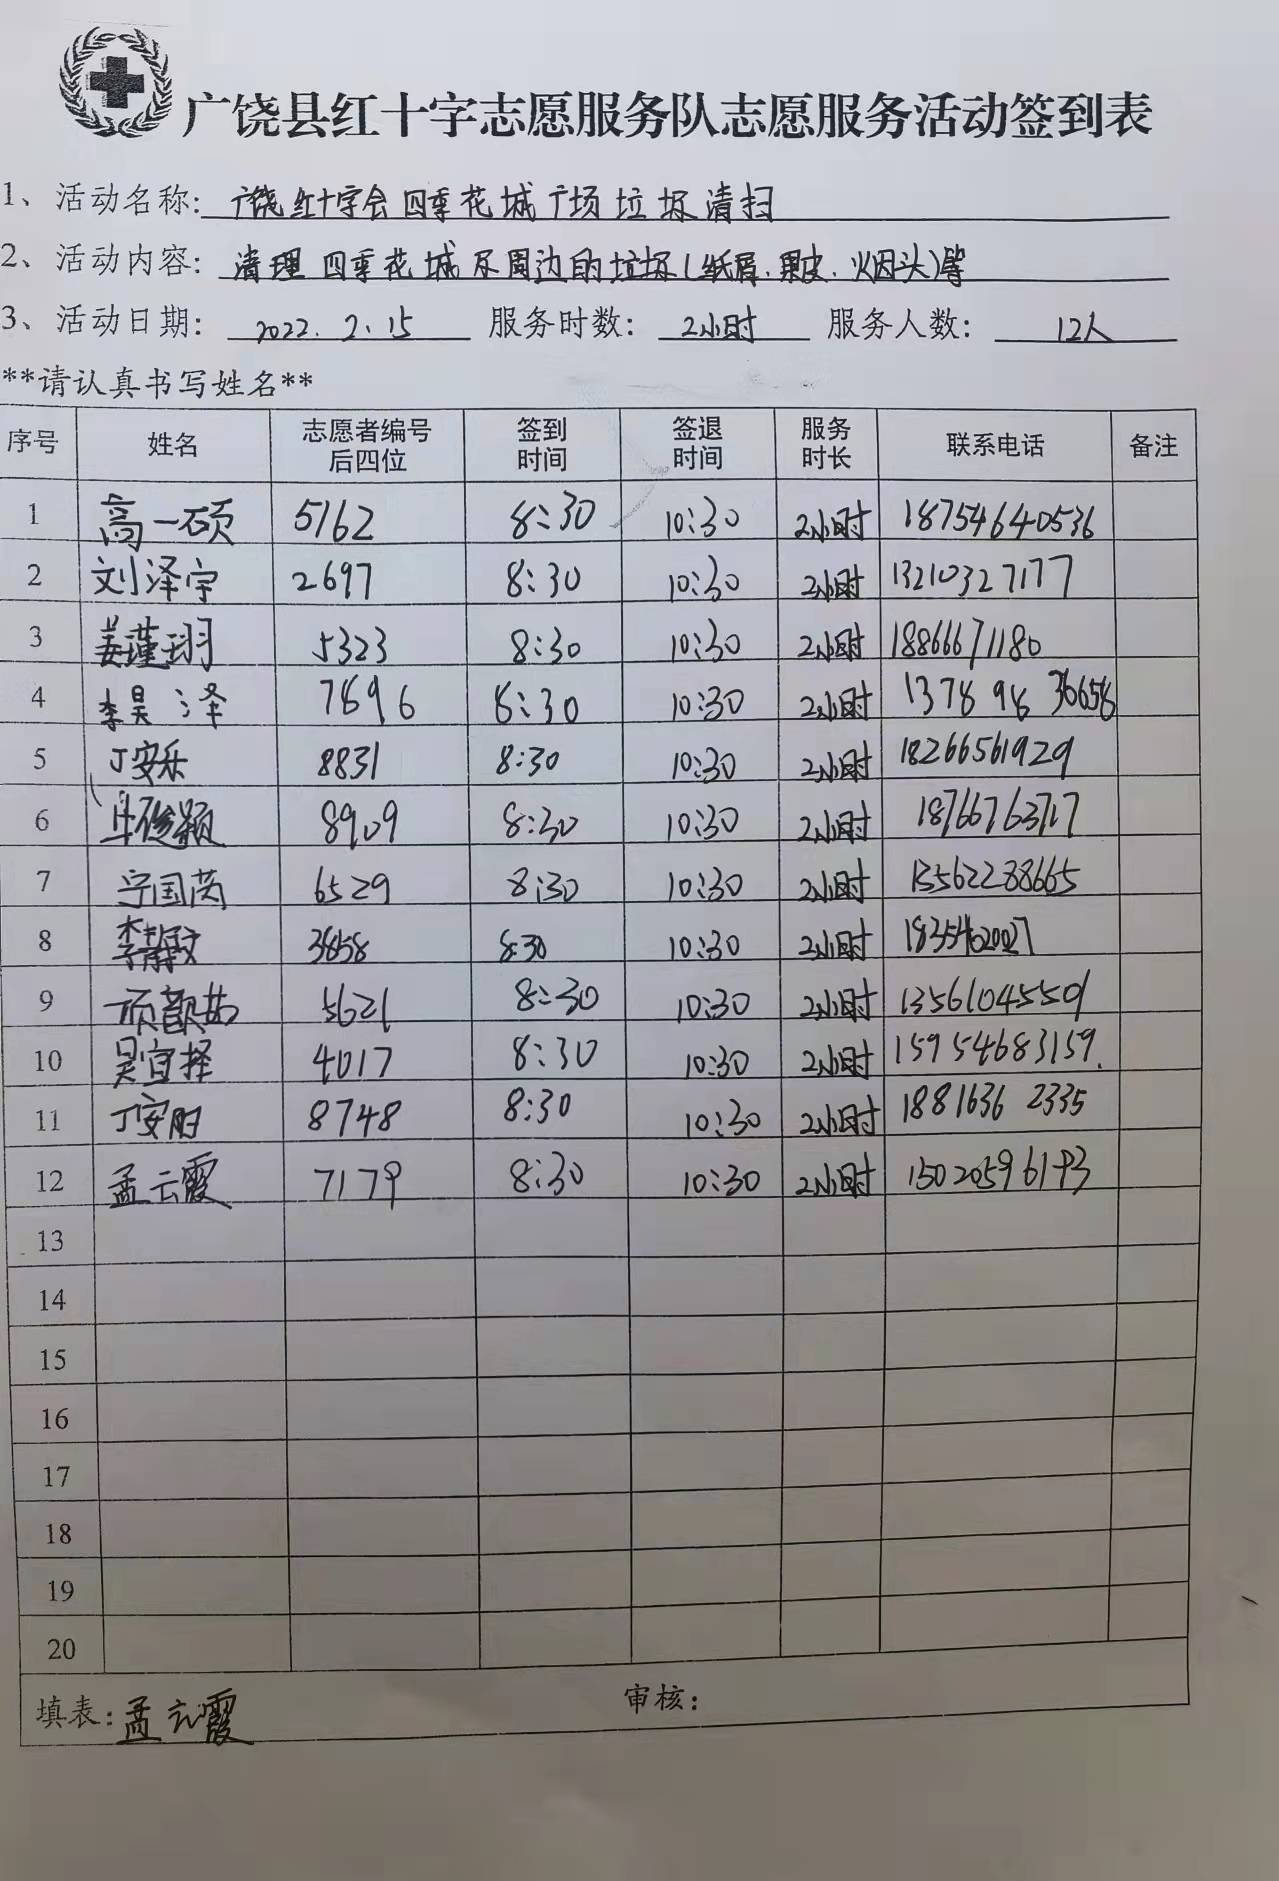 广饶县红十字志愿服务队志愿服务活动签到表
1、活动名称: 广饶红十字会四季花城广场垃圾清扫
2、活动内容: 清理四季花城及周边的垃圾(纸屑、果皮、烟头)等
3、活动日期: 2022.2.15 服务时数: 2小时 服务人数: 12人
**请认真书写姓名**
序号 姓名 志愿者编号后四位 签到时间 签退时间 服务时长 联系电话 备注
1 高一硕 5162 8:30 10:30 2小时 18754640536
2 刘泽宇 2697 8:30 10:30 2小时 13210327177
3 姜瑾翊 5323 8:30 10:30 2小时 18866671180
4 李昊泽 7896 8:30 10:30 2小时 13789836658
5 丁安乐 8831 8:30 10:30 2小时 18266561929
6 8909 8:30 10:30 2小时 18766763717
7 宁国芮 6529 8:30 10:30 2小时 13562288665
8 李静文 3858 8:30 10:30 2小时
9 5621 8:30 10:30 2小时 13561045509
10 吴宜择 4017 8:30 10:30 2小时 15954683159.
11 丁安 8748 8:30 10:30 2小时 18816362335
12 孟云霞 7179 8:30 10:30 2小时 15020596193
13
14
15
16
17
18
19
20
填表: 孟云霞 审核: